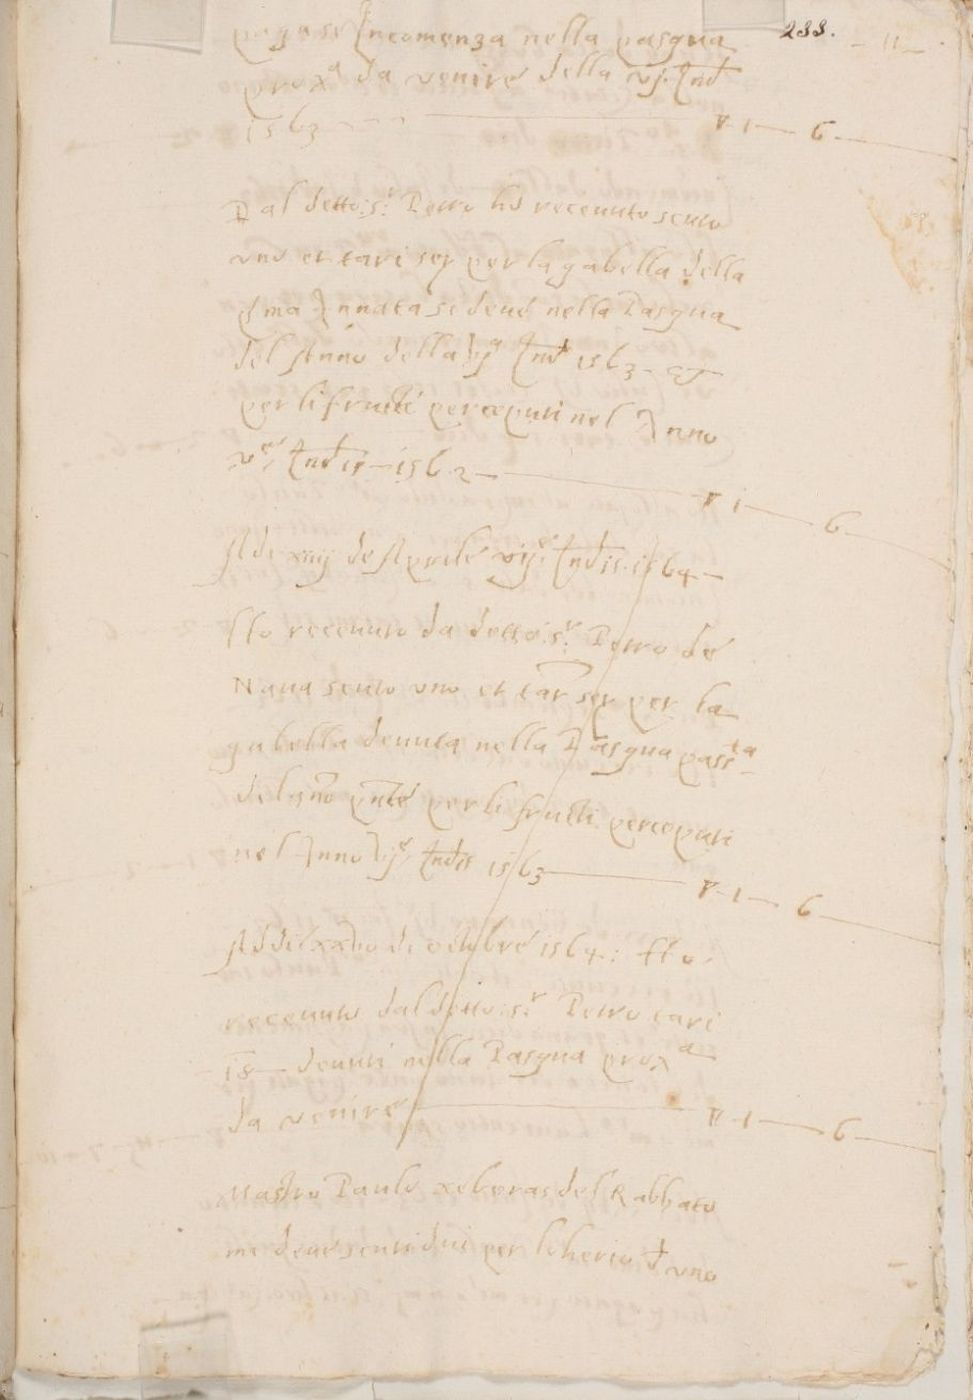 288. - 11 -
pagase Incomenza nella pasqua
prox.a da venire della vj. Ind
1563 — V 1 — 6 —
Dal detto s.r Petro hò receuuto scuto
uno et tari sej per la gabella della
p̃ma Annata se deue nella Pasqua
del Anno della vj.a Ind 1563. et
per li frutti perceputi nel Anno
v.e Indis — 1562 — V 1 — 6 —
A di xiiij de Aprile vij.e Indis. 1564 —
Ho receuuto da detto s.r Petro de
Naua scuto uno et tari sej per la
gabella deuuta nella Pasqua passta
del año pñte per li frutti perceputi
nel Anno vj.e Indis 1563 — V 1 — 6 —
A di de xxviio de octubre 1564 : Ho
receuuto dal detto s.r Petro tari
18 — deuuti nella Pasqua prox.a
da venire — V 1 — 6 —
Mastro Paulo xeberras del Rabbato
me deue scuti dui per loherio d uno